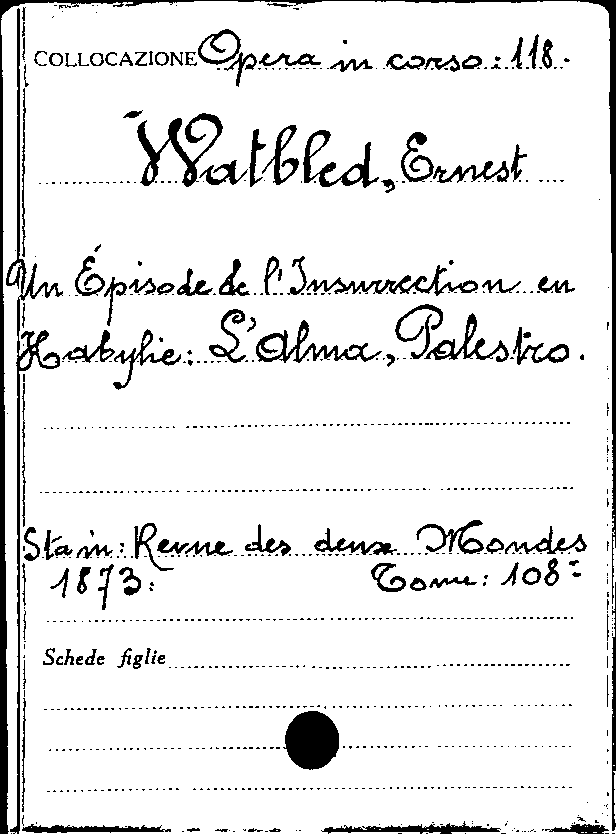 COLLOCAZIONE Opera in corso: 118.
Watbled, Ernest
Un Épisode de l'Insurrection en
Kabylie: L'Alma, Palestro.
Sta in: Revue des deux Mondes
1873: Tome: 108:
Schede figlie